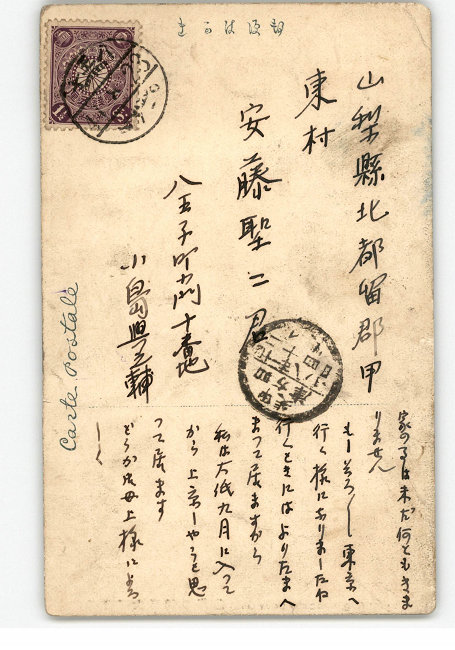 きかは便郵
山梨縣北都留郡甲
東村
安藤聖二君
八王子町間十番地
小島與輔
Carte Postale
家の事は未だ何ともきま
りません
もーそろ〱東京へ
行く様にありましたね
行くときにはよりたまへ
まつて居ますから
私は大低九月に入つて
から上京しやうと思
つて居ます
どうか御母上様によろ
しく